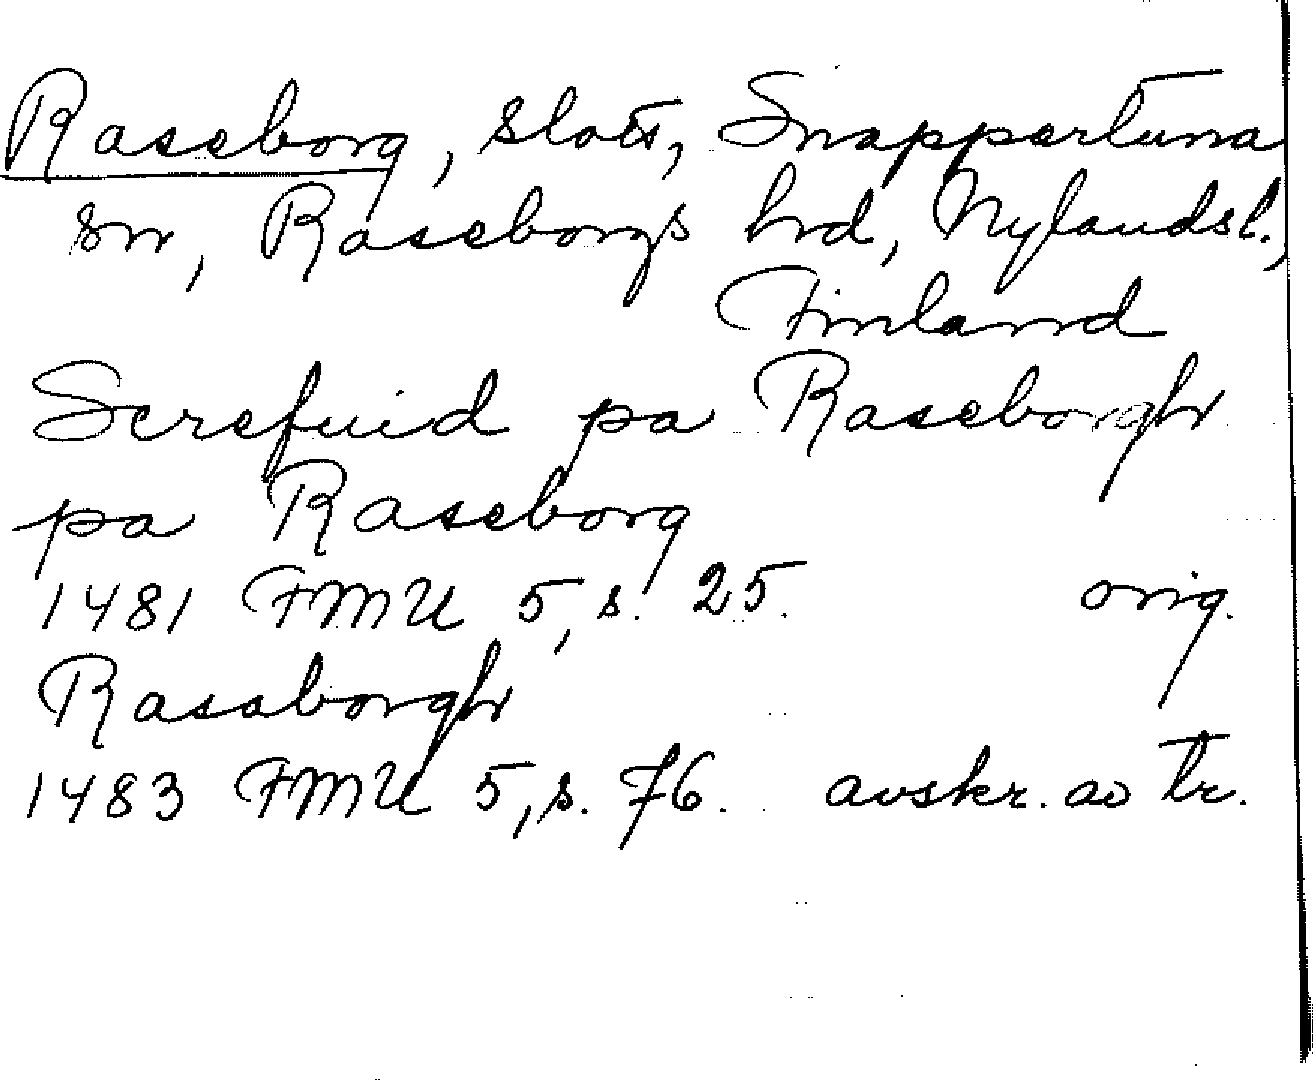 Raseborg, slott, Snappertuna
sn, Raseborgs hrd, Nylandsl.,
Finland
Screfuid pa Raseborgh
pa Raseborg
1481 FMU 5, s. 25. orig.
Rasaborgh
1483 FMU 5, s. 76. avskr. av tr.